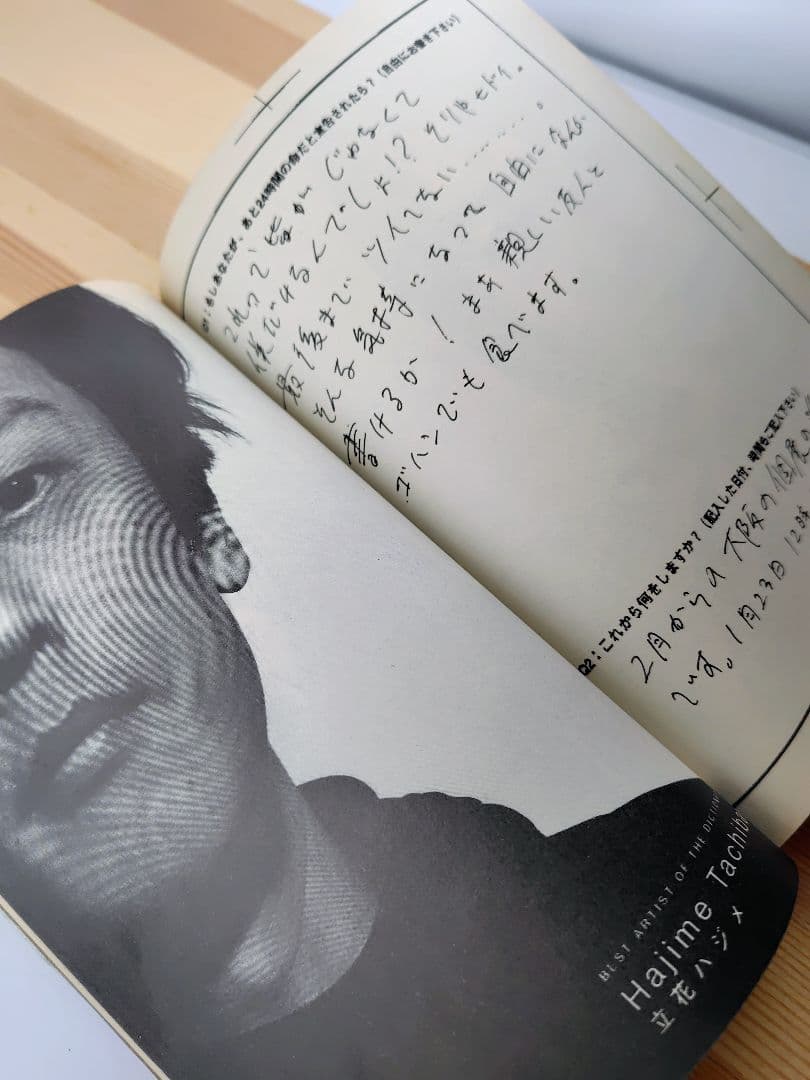 Q1：もしあなたが、あと24時間の命だと宣告されたら？（自由にお書き下さい）
これって皆が じゃなくて
僕だけなんでしょ!? そりゃヒドイ。
最後まで ツイてない………。
そんな気持になって 自由になんか
書けるか！ まあ 親しい友人と
ゴハンでも 食べます。
Q2：これから何をしますか？（記入した日付、時間もご記入下さい）
2月からの 大阪の個展の
です。1月23日 12時
BEST ARTIST OF THE
Hajime
立花ハジメ